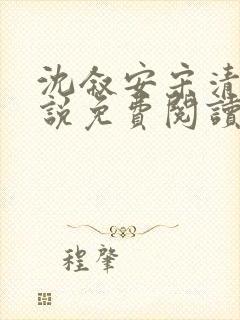 沈叙安宋清
説免費閱讀
程肇